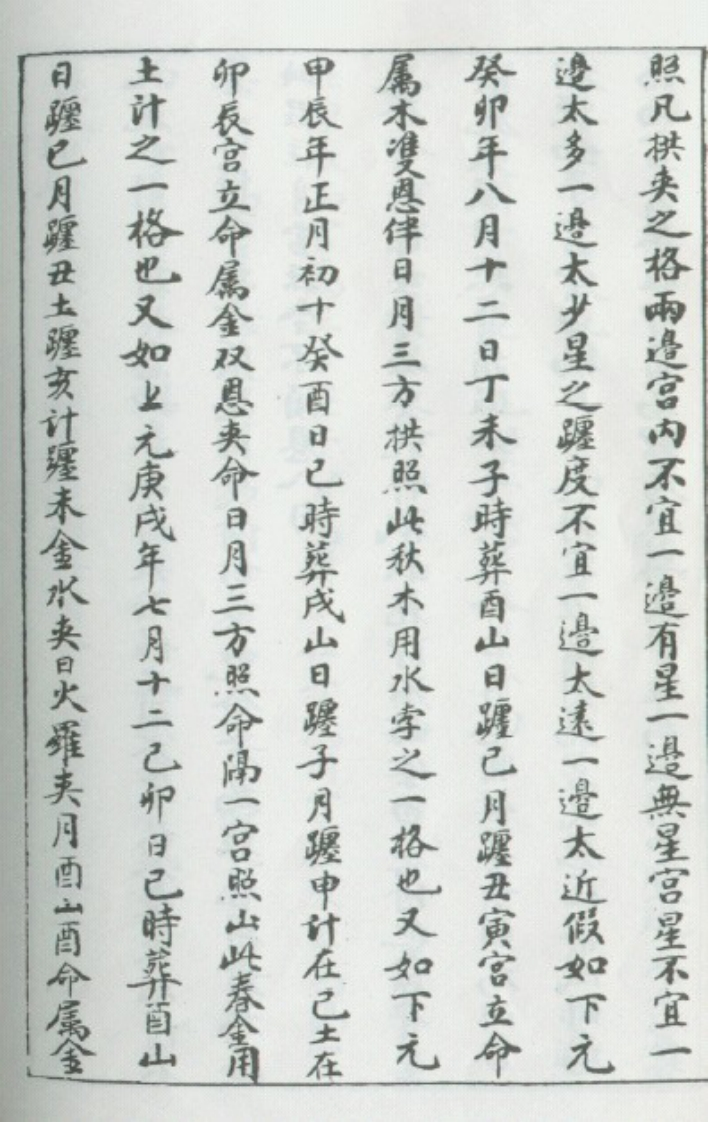 照凡拱夹之格兩邉宫内不宜一邉有星一邉無星宫星不宜一
邉太多一邉太少星之躔度不宜一邉太逺一邉太近假如下元
癸卯年八月十二日丁未子時葬酉山日躔巳月躔丑寅宫立命
属木雙恩伴日月三方拱照此秋木用水孛之一格也又如下元
甲辰年正月初十癸酉日巳時葬戌山日躔子月躔申計在巳土在
卯辰宫立命属金双恩夹命日月三方照命隔一宫照山此春金用
土計之一格也又如上元庚戌年七月十二己卯日巳時葬酉山
日躔巳月躔丑土躔亥計躔未金水夹日火羅夹月酉山酉命属金